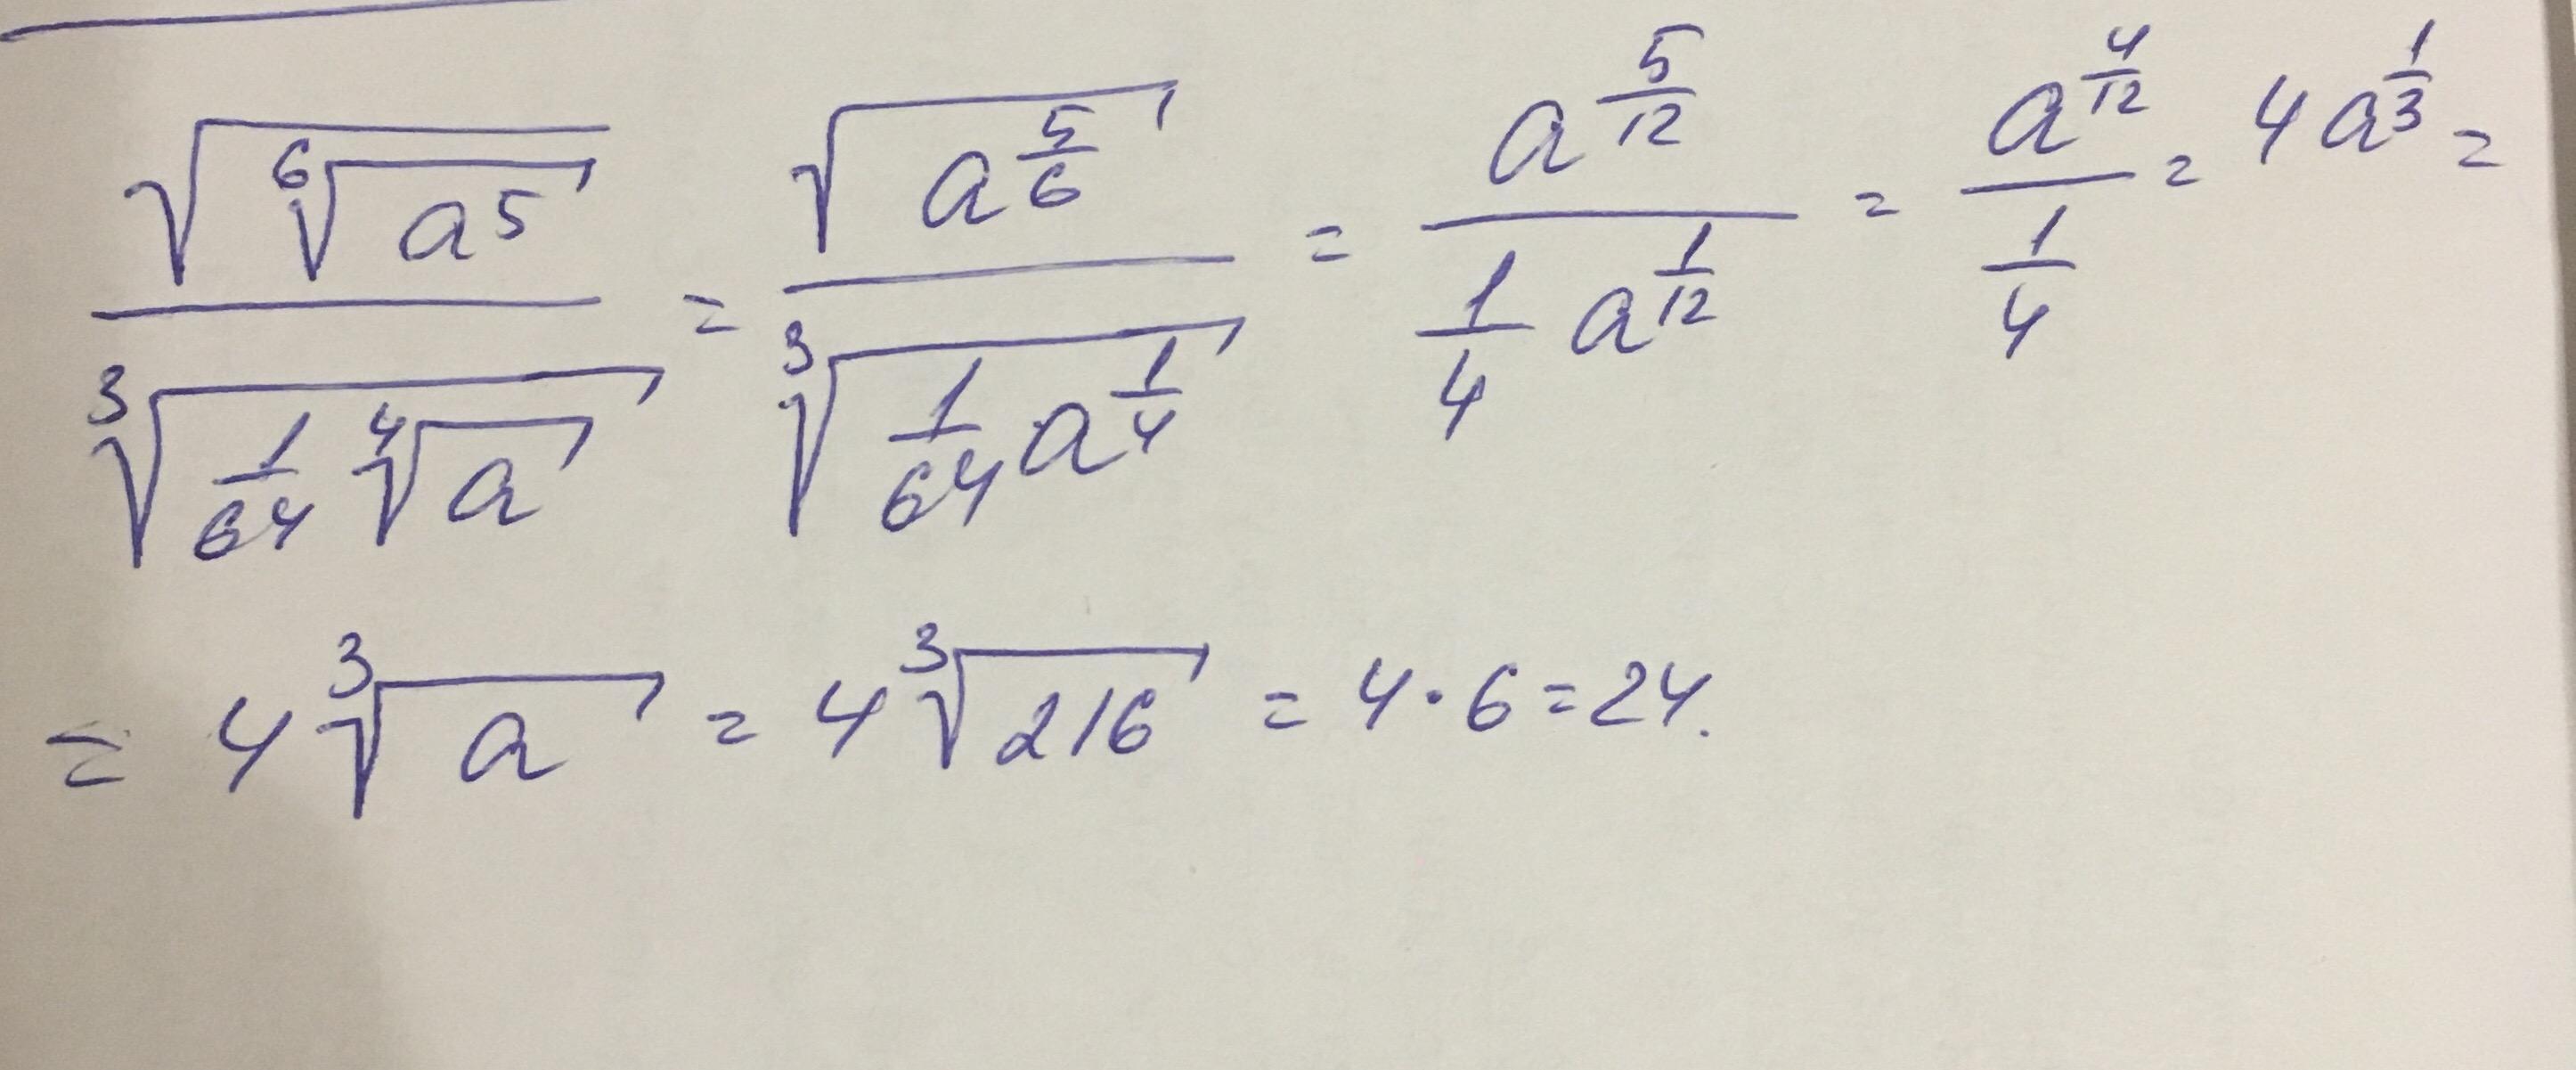 \frac{\sqrt{\sqrt[6]{a^5}}}{\sqrt[3]{\frac{1}{64}\sqrt[4]{a}}} = \frac{\sqrt{a^{\frac{5}{6}}}}{\sqrt[3]{\frac{1}{64}a^{\frac{1}{4}}}} = \frac{a^{\frac{5}{12}}}{\frac{1}{4}a^{\frac{1}{12}}} = \frac{a^{\frac{4}{12}}}{\frac{1}{4}} = 4a^{\frac{1}{3}} =
= 4\sqrt[3]{a} = 4\sqrt[3]{216} = 4 \cdot 6 = 24.